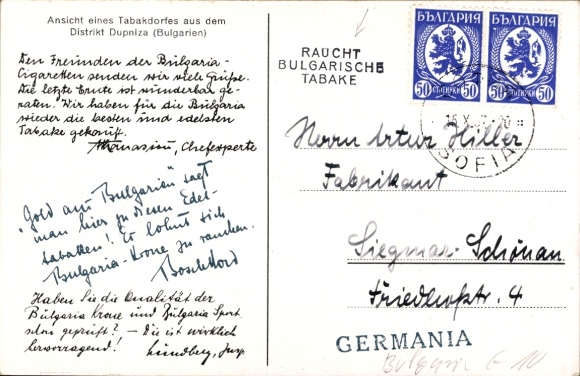 Ansicht eines Tabakdorfes aus dem
Distrikt Dupniza (Bulgarien)
Den Freunden der Bulgaria-
Cigaretten senden wir viele Grüße.
Die letzte Ernte ist wunderbar ge-
raten. Wir haben für die Bulgaria
wieder die besten und edelsten
Tabake gekauft.
Athanasiou, Chefexperte
"Gold aus Bulgarien" sagt
man hier zu diesen Edel-
tabaken! Es lohnt sich
Bulgaria-Krone zu rauchen.
Haben Sie die Qualität der
Bulgaria Krone und Bulgaria Sport
schon geprüft? – die ist wirklich
hervorragend! Lundberg, Jun.
RAUCHT
BULGARISCHE
TABAKE
БЪЛГАРИЯ
50 СТОТИНКИ 50
БЪЛГАРИЯ
50 СТОТИНКИ 50
SOFIA
Herrn Artur Hiller
Fabrikant
Siegmar-Schönau
Friedhofstr. 4
GERMANIA